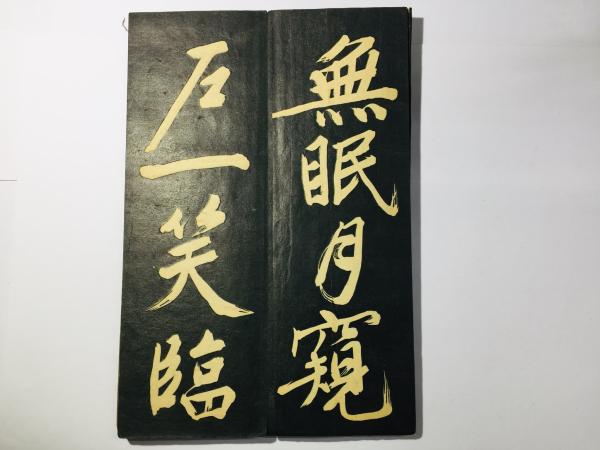 無眠月窺
戶一笑臨